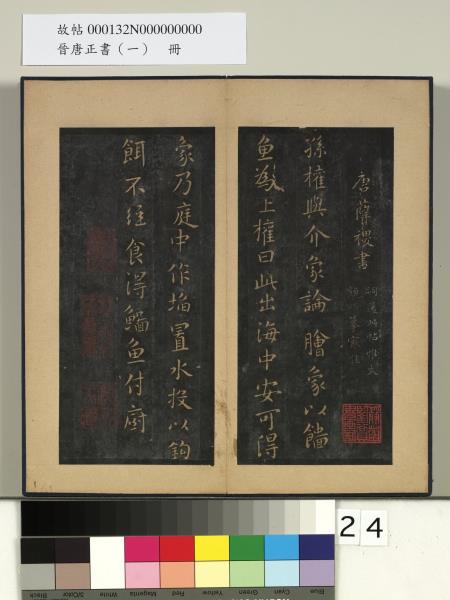 故帖 000132N000000000
晉唐正書（一）　冊
唐薛稷書
孫權與介象論膾象以鱠
魚為上權曰此出海中安可得
象乃庭中作埳置水投以鉤
餌不經食得鱠魚付廚
24
Black
3/Color
White
Magenta
Red
Yellow
Green
Cyan
Blue